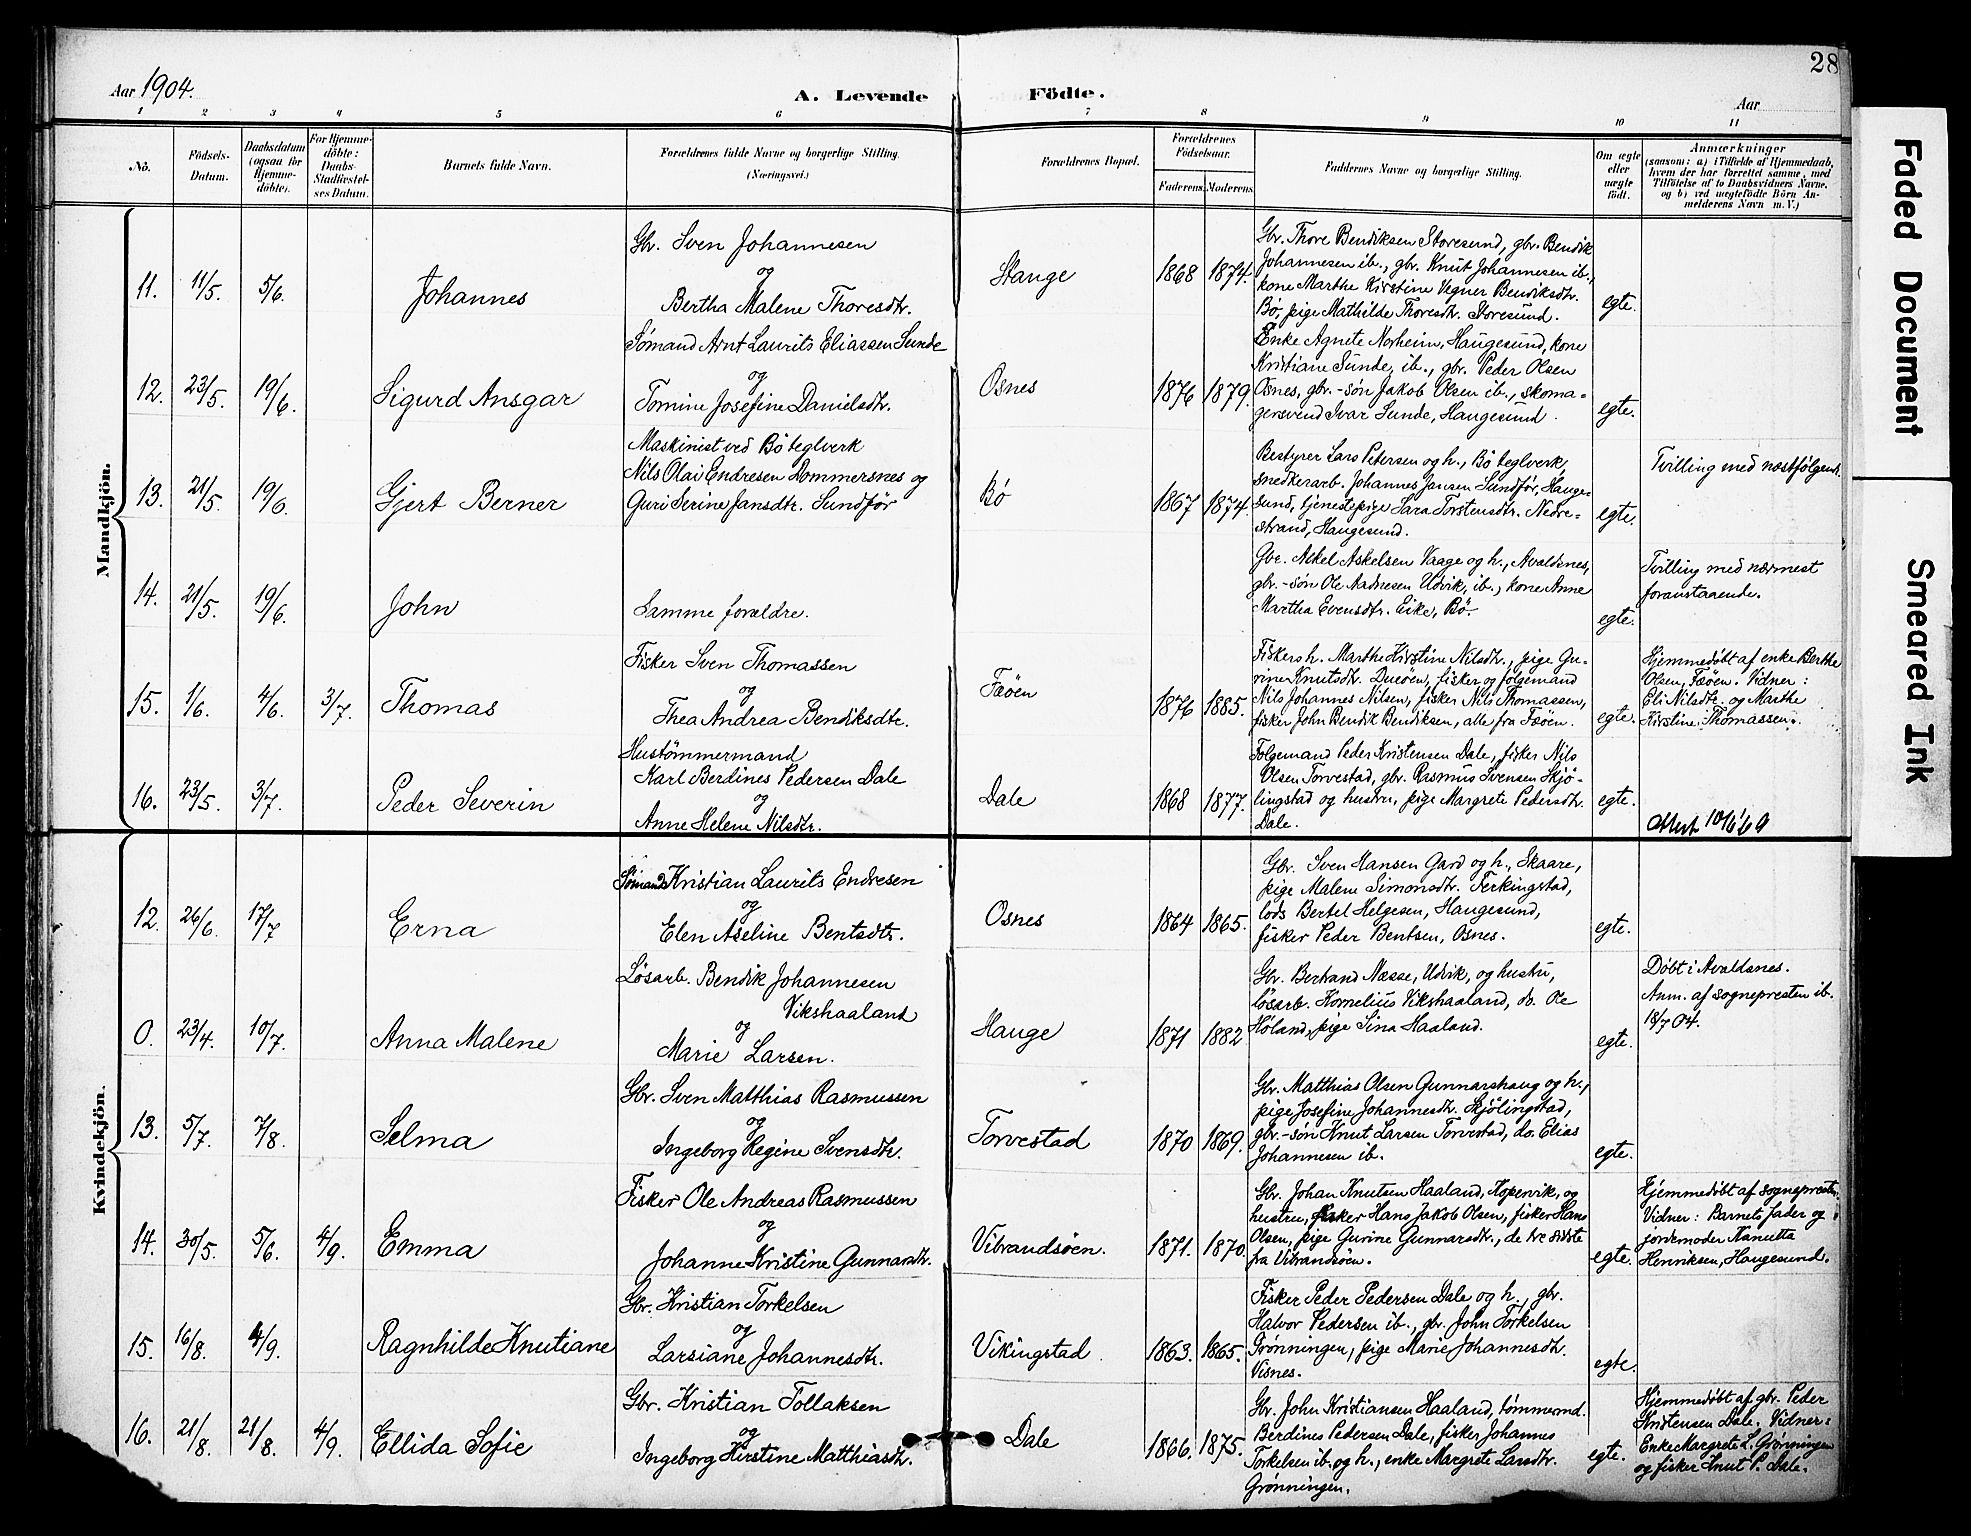 28
Aar 1904.
A. Levende Födte.
Aar
1 2 3 4 5 6 7 8 9 10 11
No.
Födsels-
Datum.
Daabsdatum
(ogsaa for
Hjemme-
döbte).
For Hjemme-
döbte:
Daabs-
Stadfæstel-
ses Datum.
Barnets fulde Navn.
Forældrenes fulde Navne og borgerlige Stilling.
(Næringsvei.)
Forældrenes Bopæl.
Forældrenes
Födselsaar.
Faderens. Moderens.
Faddernes Navne og borgerlige Stilling.
Om ægte
eller
uægte
födt.
Anmærkninger
(saasom: a) i Tilfælde af Hjemmedaab,
hvem der har forrettet samme, med
Tilföielse af to Daabsvidners Navne,
og b) ved uægtefödte Börn An-
melderens Navn m. V.)
Mandkjön.
11. 11/5. 5/6.
Johannes
Gbr. Sven Johannesen
og
Bertha Malene Thoresdtr.
Hauge
1868 1874.
Gbr. Thore Bendiksen Storesund, gbr. Bendik
Johannesen ib., gbr. Knut Johannesen ib.,
kone Marthe Kirstine Vegner Bendiksdtr.
Bø, pige Mathilde Thoresdtr. Storesund.
egte.
12. 23/5. 19/6.
Sigurd Ansgar
Sømand Arnt Laurits Eliassen Sunde
og
Tomine Josefine Danielsdtr.
Osnes
1876 1879.
Enke Agnete Norheim, Haugesund, kone
Kristiane Sunde, ib., gbr. Peder Olsen
Osnes, gbr.-søn Jakob Olsen ib., skoma-
gersvend Ivar Sunde, Haugesund.
egte.
13. 21/5. 19/6.
Gjert Berner
Maskinist ved Bø teglverk
Nils Olai Endresen Dommersnes og
Guri Serine Jansdtr. Sundfør
Bø
1867 1874.
Bestyrer Lars Petersen og h., Bø teglverk,
snedkerarb. Johannes Jansen Sundfør, Hauge-
sund, tjenestepige Sara Torstensdtr. Nedre-
strand, Haugesund.
egte.
Tvilling med næstfølgende.
14. 21/5. 19/6.
John
Samme forældre.
Gbr. Askel Askelsen Vaage og h., Avaldsnes,
gbr.-søn Ole Aadnesen Udvik, ib., kone Anne
Martha Evensdtr. Eike, Bø.
egte.
Tvilling med nærmest
foranstaaende.
15. 1/6. 4/6. 3/7.
Thomas
Fisker Sven Thomassen
og
Thea Andrea Bendiksdtr.
Fæøen
1876 1885.
Fiskersh. Marthe Kirstine Nilsdtr., pige Gu-
rine Knutsdtr. Dueøen, fisker og følgemand
Nils Johannes Nilsen, fisker Nils Thomassen,
fisker John Bendik Bendiksen, alle fra Fæøen.
egte.
Hjemmedøbt af enke Berthe
Olsen, Fæøen. Vidner:
Eli Nilsdtr. og Marthe
Kirstine Thomassen.
16. 23/5. 3/7.
Peder Severin
Hustømmermand
Karl Berdines Pedersen Dale
og
Anne Helene Nilsdtr.
Dale
1868 1877.
Følgemand Peder Kristensen Dale, fisker Nils
Olsen Torvestad, gbr. Rasmus Svensen Skjø-
lingstad og hustru, pige Margrete Pedersdtr.
Dale.
egte.
Attest 10/6 69
Kvindekjön.
12. 26/6. 17/7
Erna
Sømand Kristian Laurits Endresen
og
Elen Aseline Bentsdtr.
Osnes
1864 1865.
Gbr. Sven Hansen Gard og h., Skaare,
pige Malene Simonsdtr. Ferkingstad,
lods Bertel Helgesen, Haugesund,
fisker Peder Bentsen, Osnes.
egte.
0. 23/4. 10/7.
Anna Malene
Løsarb. Bendik Johannesen
Vikshaaland
og
Marie Larsen.
Hauge
1871 1882
Gbr. Bertrand Næsse, Udvik, og hustru,
løsarb. Kornelius Vikshaaland, do. Ole
Høland, pige Sina Haaland.
egte.
Døbt i Avaldsnes.
Anm. af sognepresten ib.
18/7 04.
13. 5/7. 7/8.
Selma
Gbr. Sven Matthias Rasmussen
og
Ingeborg Regine Svensdtr.
Torvestad
1870 1869.
Gbr. Matthias Olsen Gunnarshaug og h.,
pige Josefine Johannesdtr. Skjølingstad,
gbr.-søn Knut Larsen Torvestad, do. Elias
Johannesen ib.
egte.
14. 30/5. 5/6. 4/9.
Emma
Fisker Ole Andreas Rasmussen
og
Johanne Kristine Gunnarsdtr.
Vibrandsøen.
1871. 1870.
Gbr. Johan Knutsen Haaland, Kopervik, og
hustru, fisker Hans Jakob Olsen, fisker Hans
Olsen, pige Gurine Gunnarsdtr., de tre sidste
fra Vibrandsøen.
egte.
Hjemmedøbt af sognepresten.
Vidner: Barnets fader og
jordemoder Kanutta
Henriksen, Haugesund.
15. 16/8. 4/9.
Ragnhilde Knutiane
Gbr. Kristian Torkelsen
og
Larsiane Johannesdtr.
Vikingstad.
1863. 1865.
Fisker Peder Pedersen Dale og h., gbr.
Halvor Pedersen ib., gbr. John Torkelsen
Grønningen, pige Marie Johannesdtr.
Visnes.
egte.
16. 21/8. 21/8. 4/9.
Ellida Sofie
Gbr. Kristian Tollaksen
og
Ingeborg Kirstine Matthiasdtr.
Dale
1866. 1875.
Gbr. John Kristiansen Haaland, tømmermd.
Berdines Pedersen Dale, fisker Johannes
Torkelsen ib. og h., enke Margrete Larsdtr.
Grønningen.
egte.
Hjemmedøbt af gbr. Peder
Kristensen Dale. Vidner:
Enke Margrete L. Grønningen
og fisker Knut P. Dale.
Faded Document
Smeared Ink